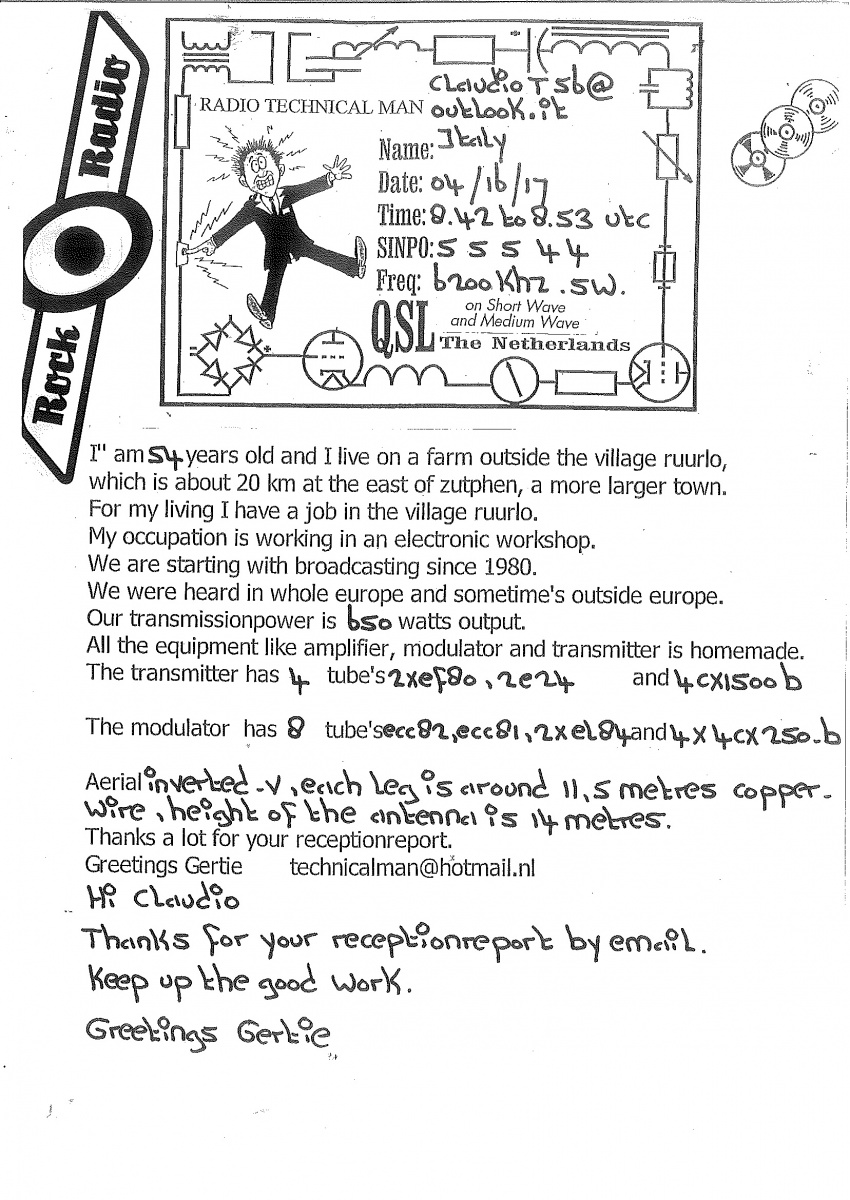 Rock Radio
RADIO TECHNICAL MAN
Claudio T Sb@
outlook.it
Name: Italy
Date: 04/16/17
Time: 8.42 to 8.53 utc
SINPO: 5 5 5 4 4
Freq: 6200 Khz .sw.
QSL
on Short Wave
and Medium Wave
The Netherlands
I" am 54 years old and I live on a farm outside the village ruurlo,
which is about 20 km at the east of zutphen, a more larger town.
For my living I have a job in the village ruurlo.
My occupation is working in an electronic workshop.
We are starting with broadcasting since 1980.
We were heard in whole europe and sometime's outside europe.
Our transmissionpower is 650 watts output.
All the equipment like amplifier, modulator and transmitter is homemade.
The transmitter has 4 tube's 2xef80, 2e24 and 4cx1500b
The modulator has 8 tube's ecc82, ecc81, 2xel84 and 4x4cx250-b
Aerial inverted-v, each leg is around 11,5 metres copper-
wire, height of the antenna is 14 metres.
Thanks a lot for your receptionreport.
Greetings Gertie technicalman@hotmail.nl
Hi Claudio
Thanks for your receptionreport by email.
Keep up the good work.
Greetings Gertie